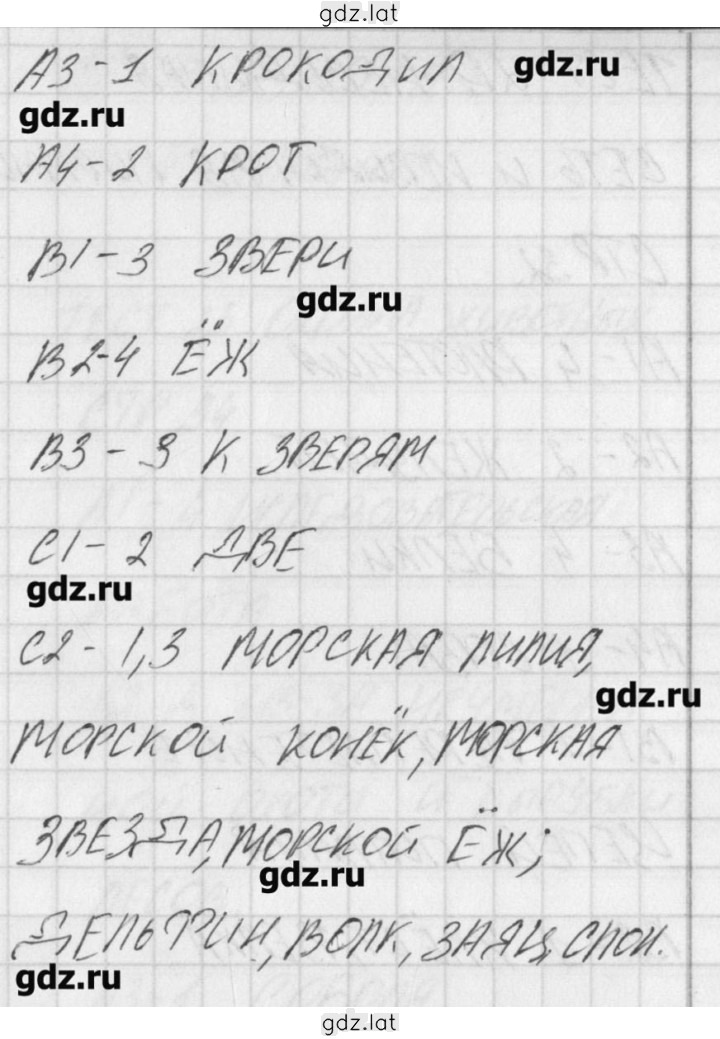 gdz.lat
А3-1 КРОКОДИЛ gdz.ru
gdz.ru
А4-2 КРОТ
В1-3 ЗВЕРИ
gdz.ru
В2-4 ЁЖ
В3-3 К ЗВЕРЯМ
С1-2 ДВЕ
gdz.ru
С2-1,3 МОРСКАЯ ЛИЛИЯ,
gdz.ru
МОРСКОЙ КОНЁК, МОРСКАЯ
ЗВЕЗДА, МОРСКОЙ ЁЖ;
gdz.ru
ДЕЛЬФИН, ВОЛК, ЗАЯЦ, СЛОН.
gdz.ru
gdz.lat